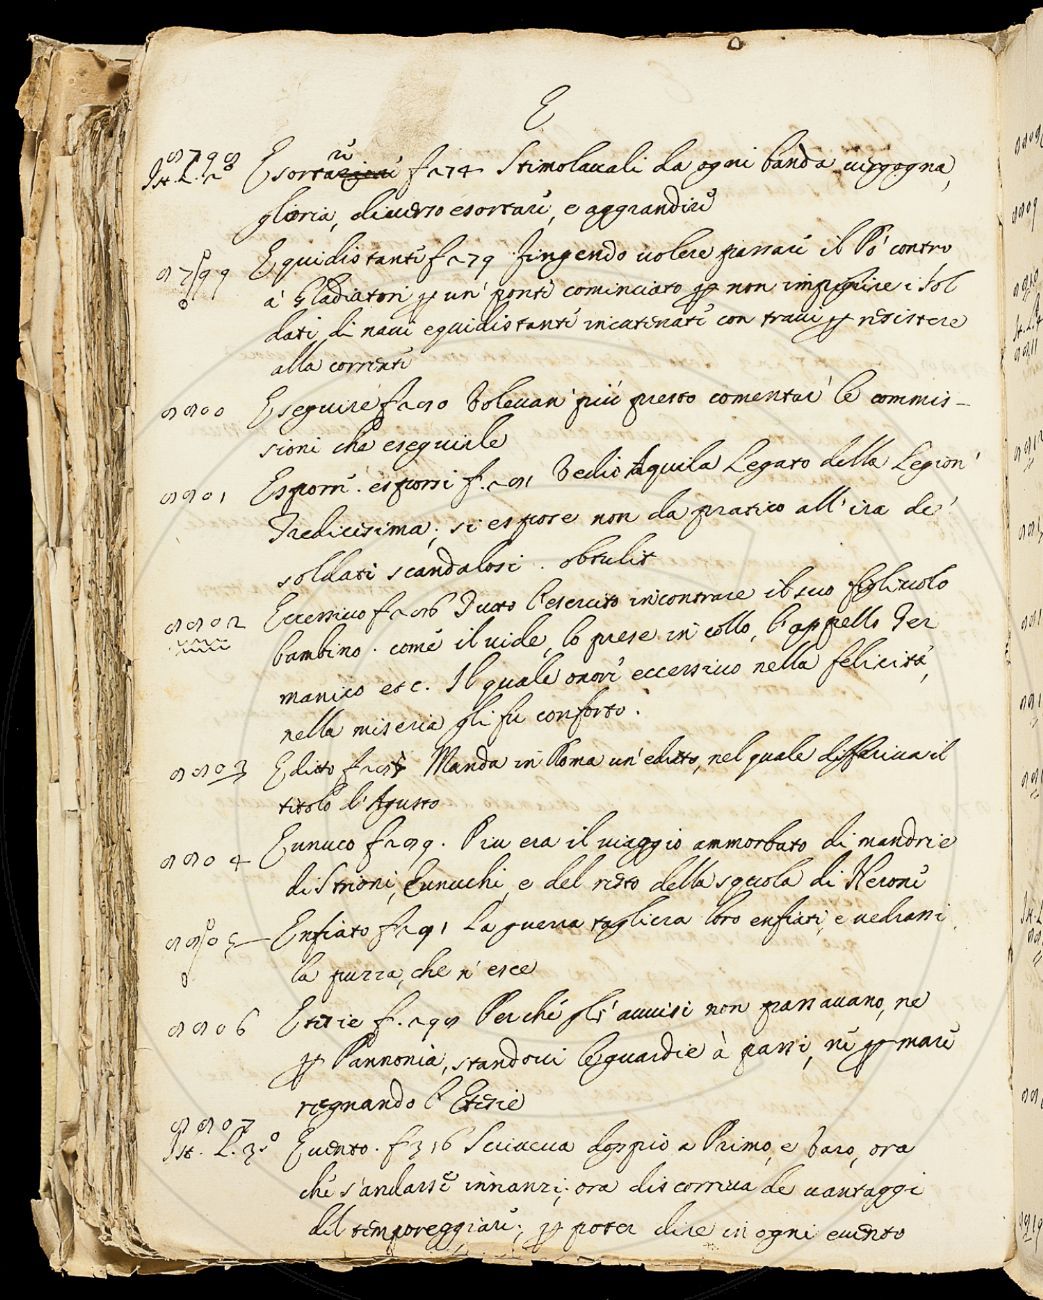 E
8798 Esortare f 274 Stimolavali da ogni banda vergogna,
Ist. L. 2.° gloria, diverso esortare, e aggrandire
8799 Equidistante f 279 fingendo volere passare il Pò contro
à Gladiatori per un' ponte cominciato per non impigrire i Sol
dati, di navi equidistanti incatenate con travi per resistere
alla corrente
8800 Eseguire f 280 Volevan' più presto comentar' le commis-
sioni che eseguirle
8801 Esporre. esporsi f. 281 Vedio Aquila Legato della Legion'
Tredicesima, si espose non da pratico all'ira de'
soldati scandalosi. obtulit
8802 Eccessivo f 286 Tutto l'esercito incontrare il suo figliuolo
bambino. come il vide, lo prese in collo, l'appellò Ger
manico etc. Il quale onore eccessivo nella felicità,
nella miseria gli fu conforto.
8803 Editto f Manda in Roma un' editto, nel quale differiva il
titolo d'Agusto
8804 Eunuco f 289. Più era il viaggio ammorbato di mandrie
di Strioni, Eunuchi, e del resto della squola di Nerone
8805 Enfiato f 291 La guerra tagliera loro enfiati, e vedrassi
la puzza, che n' esce
8806 Etesie f. 298 Perché gl'avvisi non passavano, ne
per Pannonia, standovi le guardie à passi, ne per mare
regnando l'Etesie
8807
Ist. L. 3.° Evento. f 316 Scriveva doppio a Primo, e Varo, ora
che s'andasse innanzi, ora discorreva de vantaggi
del temporeggiare; per poter dire in ogni evento